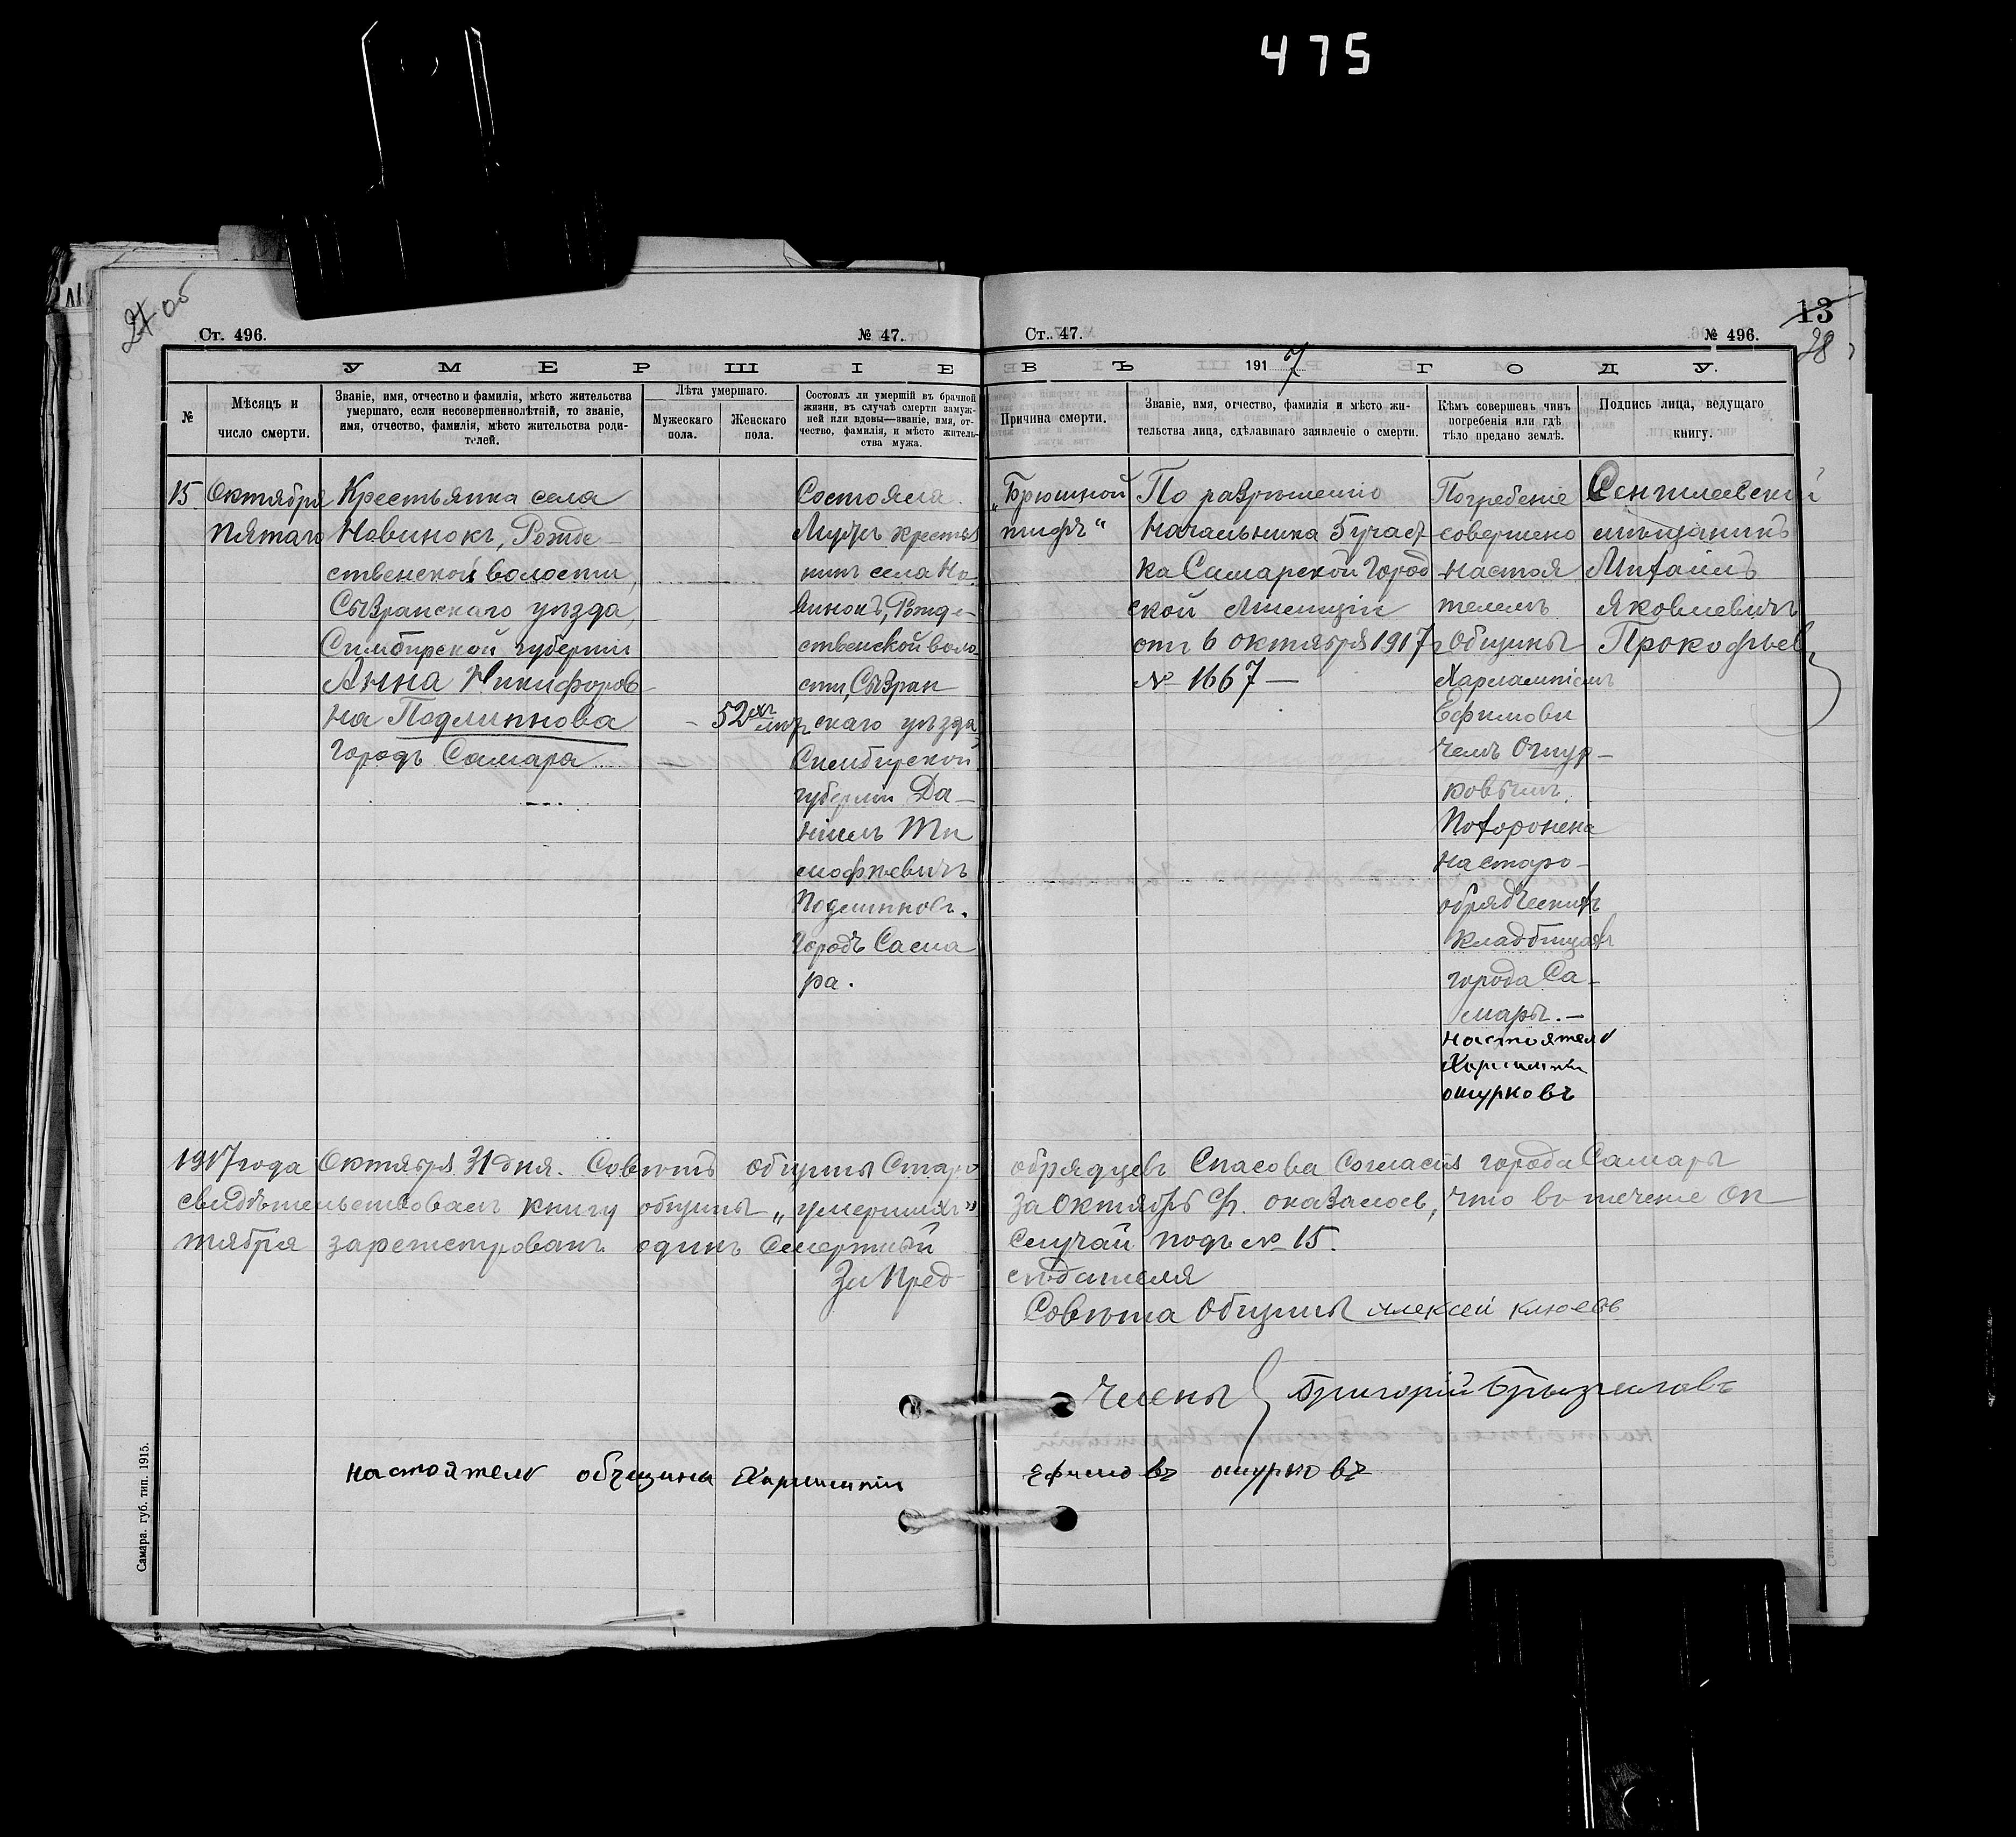 475
27 об
13
28
Ст. 496.
№ 47.
Ст. 47.
№ 496.
УМЕРШІЕ ВЪ 1917 ГОДУ.
№
Мѣсяцъ и
число смерти.
Званіе, имя, отчество и фамилія, мѣсто жительства
умершаго, если несовершеннолѣтній, то званіе,
имя, отчество, фамилія, мѣсто жительства роди-
телей.
Лѣта умершаго.
Мужескаго
пола.
Женскаго
пола.
Состоялъ ли умершій въ брачной
жизни, въ случаѣ смерти замуж-
ней или вдовы—званіе, имя, от-
чество, фамилія, и мѣсто житель-
ства мужа.
Причина смерти.
Званіе, имя, отчество, фамилія и мѣсто жи-
тельства лица, сдѣлавшаго заявленіе о смерти.
Кѣмъ совершенъ чинъ
погребенія или гдѣ
тѣло предано землѣ.
Подпись лица, ведущаго
книгу.
15
Октября
пятаго
Крестьянка села
Новинокъ, Рожде-
ственской волости,
Сызранскаго уѣзда,
Симбирской губерніи
Анна Никифоров-
на Подлипнова
городъ Самара
52хъ
лѣтъ
Состояла.
Мужъ крестья
нинъ села Но-
винокъ, Рожде-
ственской воло
сти, Сызран
скаго уѣзда,
Симбирской
губерніи Да-
ніилъ Ти
мофѣевичъ
Подлипновъ.
городъ Сама
ра.
„Брюшной
тифъ“
По разрѣшенію
Начальника 5 участ
ка Самарской Город
ской Милиціи
отъ 6 октября 1917г
№ 1667 —
Погребеніе
совершено
настоя
телемъ
Общины
Харлампіемъ
Ефимови
чемъ Ошур-
ковымъ.
Похоронена
на старо-
обрядческихъ
кладбищахъ
города Са-
мары. —
настоятель
Харлампій
ошурковъ
Сенгилеевскій
мѣщанинъ
Михаилъ
Яковлевичъ
Прокофьев
1917 года Октября 31 дня. Совѣтъ общины Старо обрядцевъ Спасова Согласія города Самары
свидѣтельствовалъ книгу общины „умершихъ“ за Октябрь с/г. оказалось, что въ теченіе Ок
тября зарегестрованъ одинъ Смертный Случай подъ № 15.
За Пред сѣдателя
Совѣта Общины Алексей Клюевъ
Члены Григорій
настоятель обчщины Харлампій Ефимовъ ошурковъ
Самара. губ. тип. 1915.